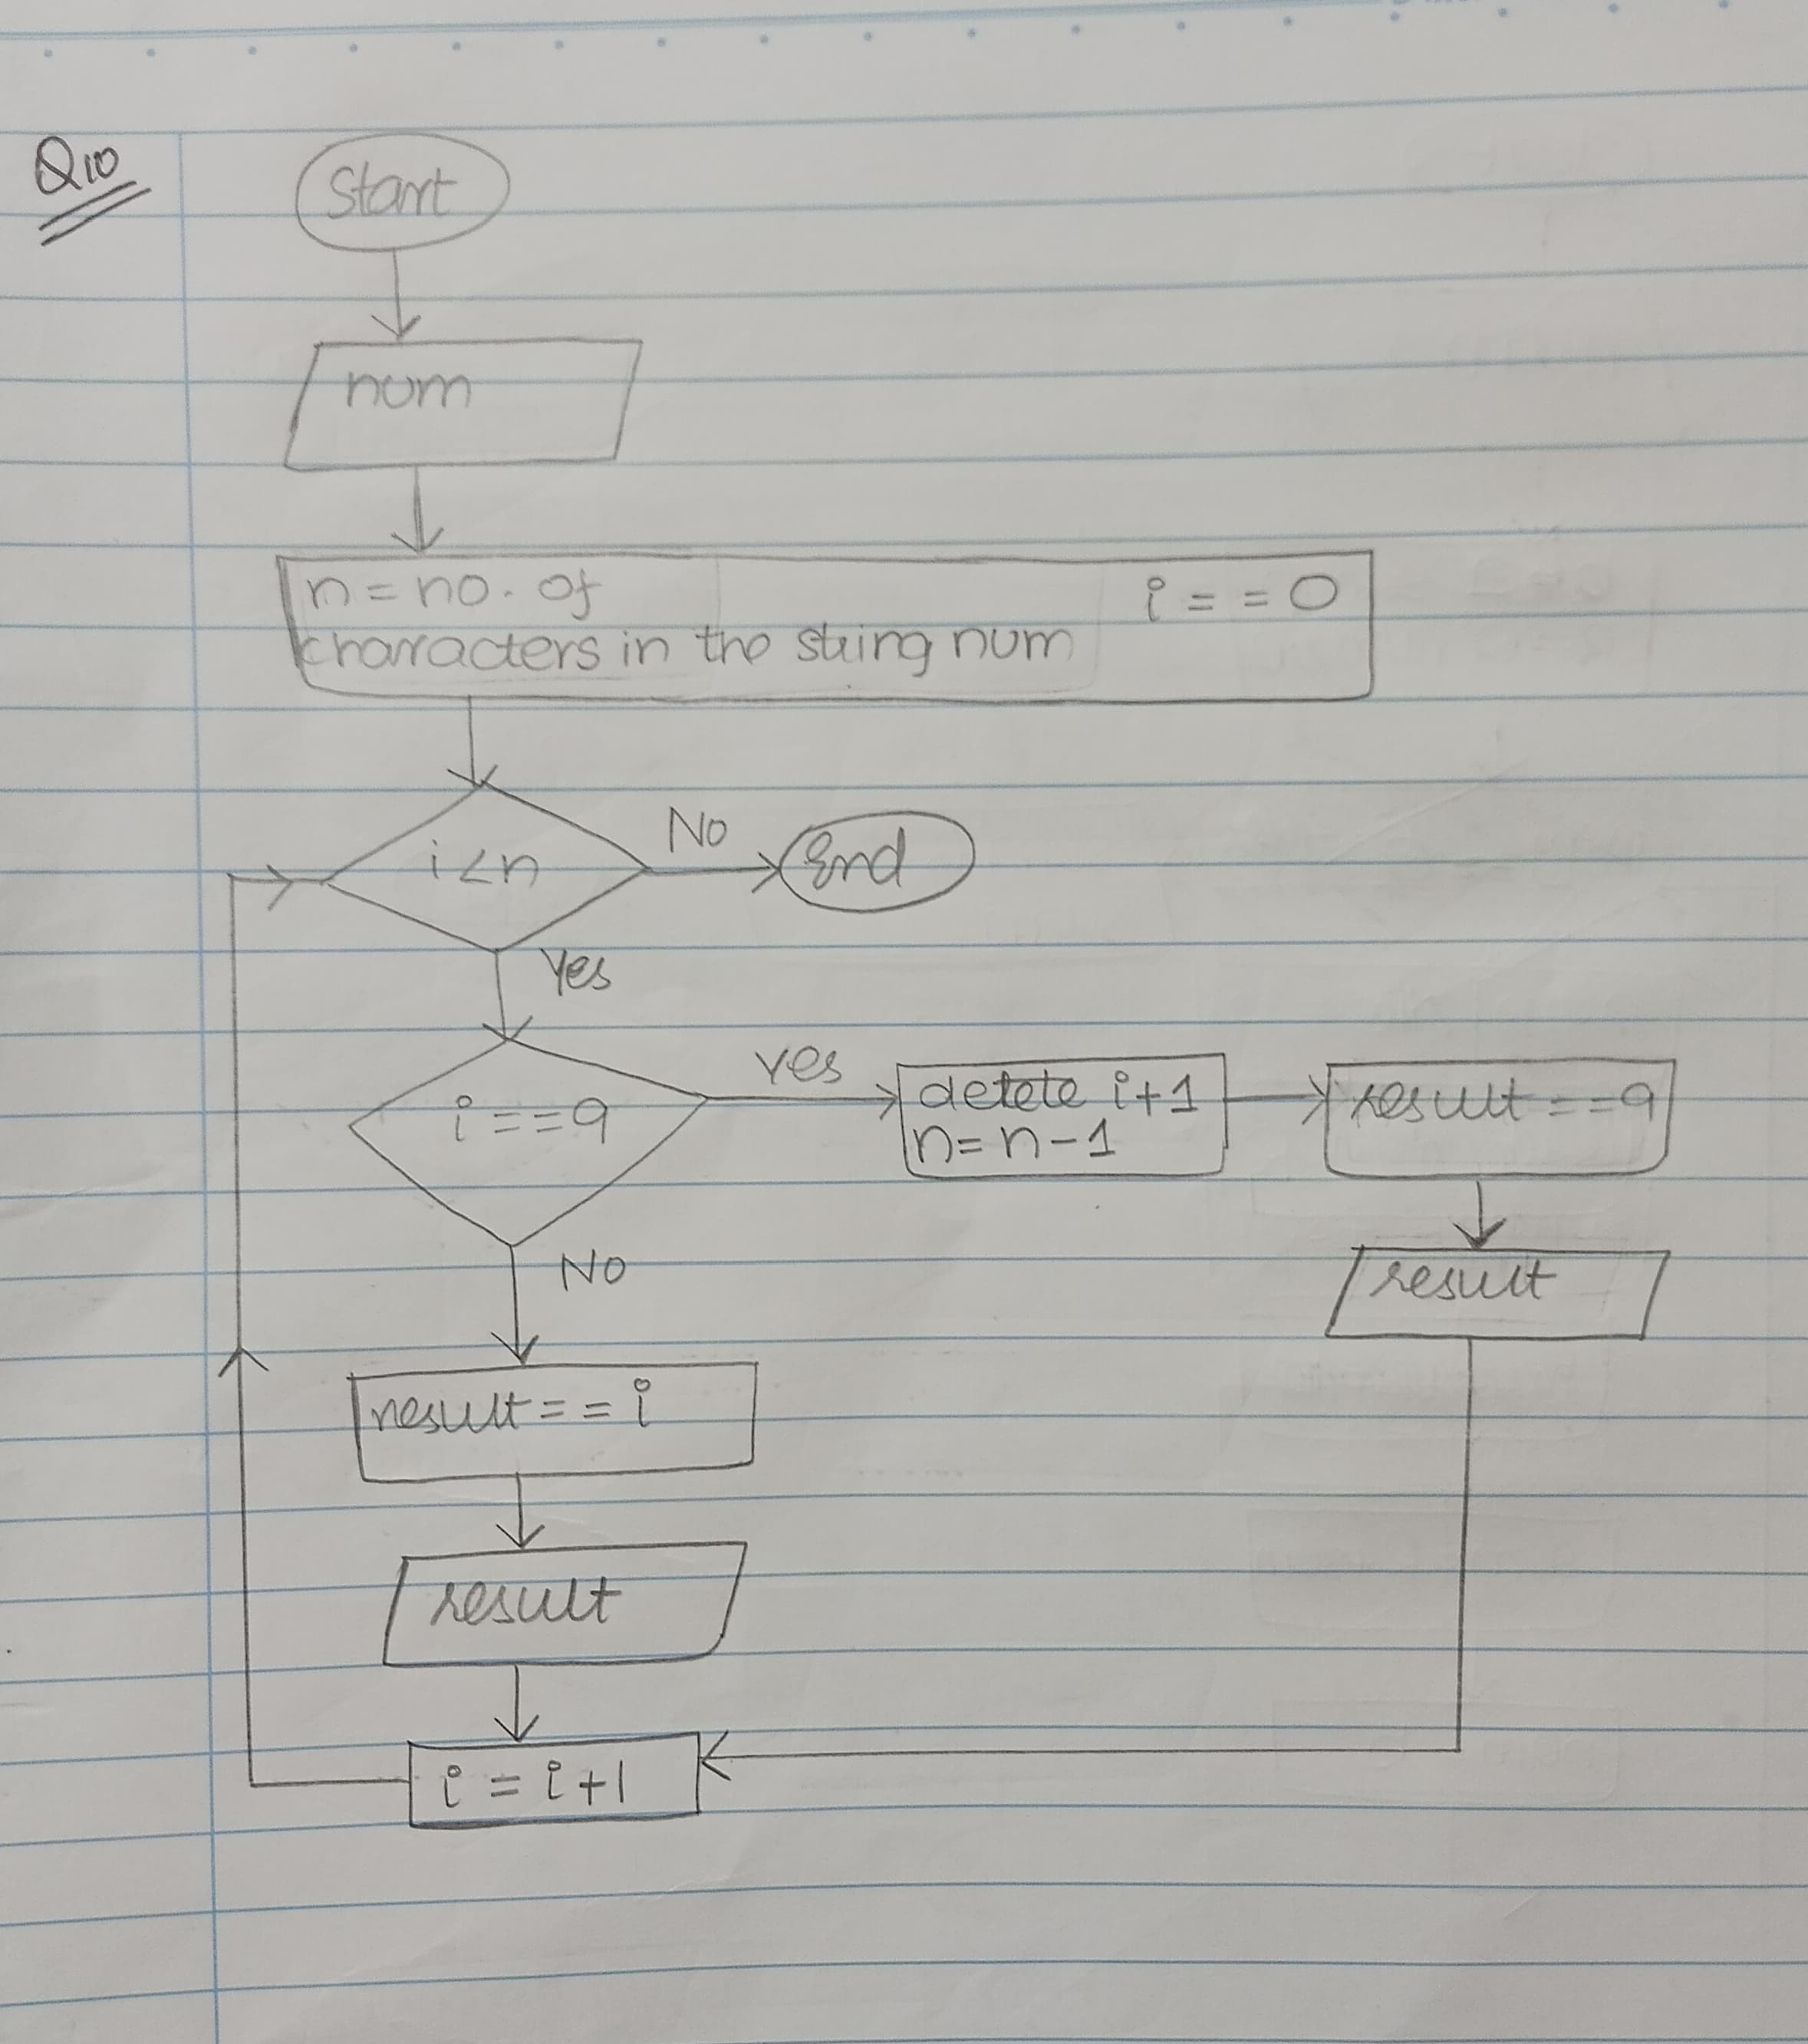 Q10
Start
num
n = no. of
characters in the string num
i == 0
i < n
No
End
Yes
i == 9
yes
delete i+1
n = n - 1
result == 9
result
NO
result == i
result
i = i+1